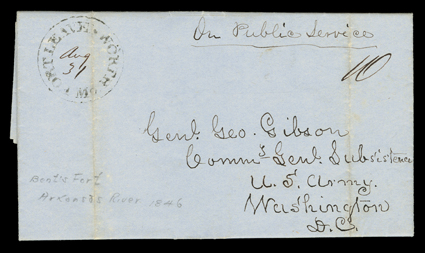 On Public Service
FORT LEAVENWORTH
Mo
Aug
31
10
Genl. Geo. Gibson
Comms. Genl. Subsistence
U.S. Army.
Washington
D.C.
Bent's Fort
Arkansas River 1846